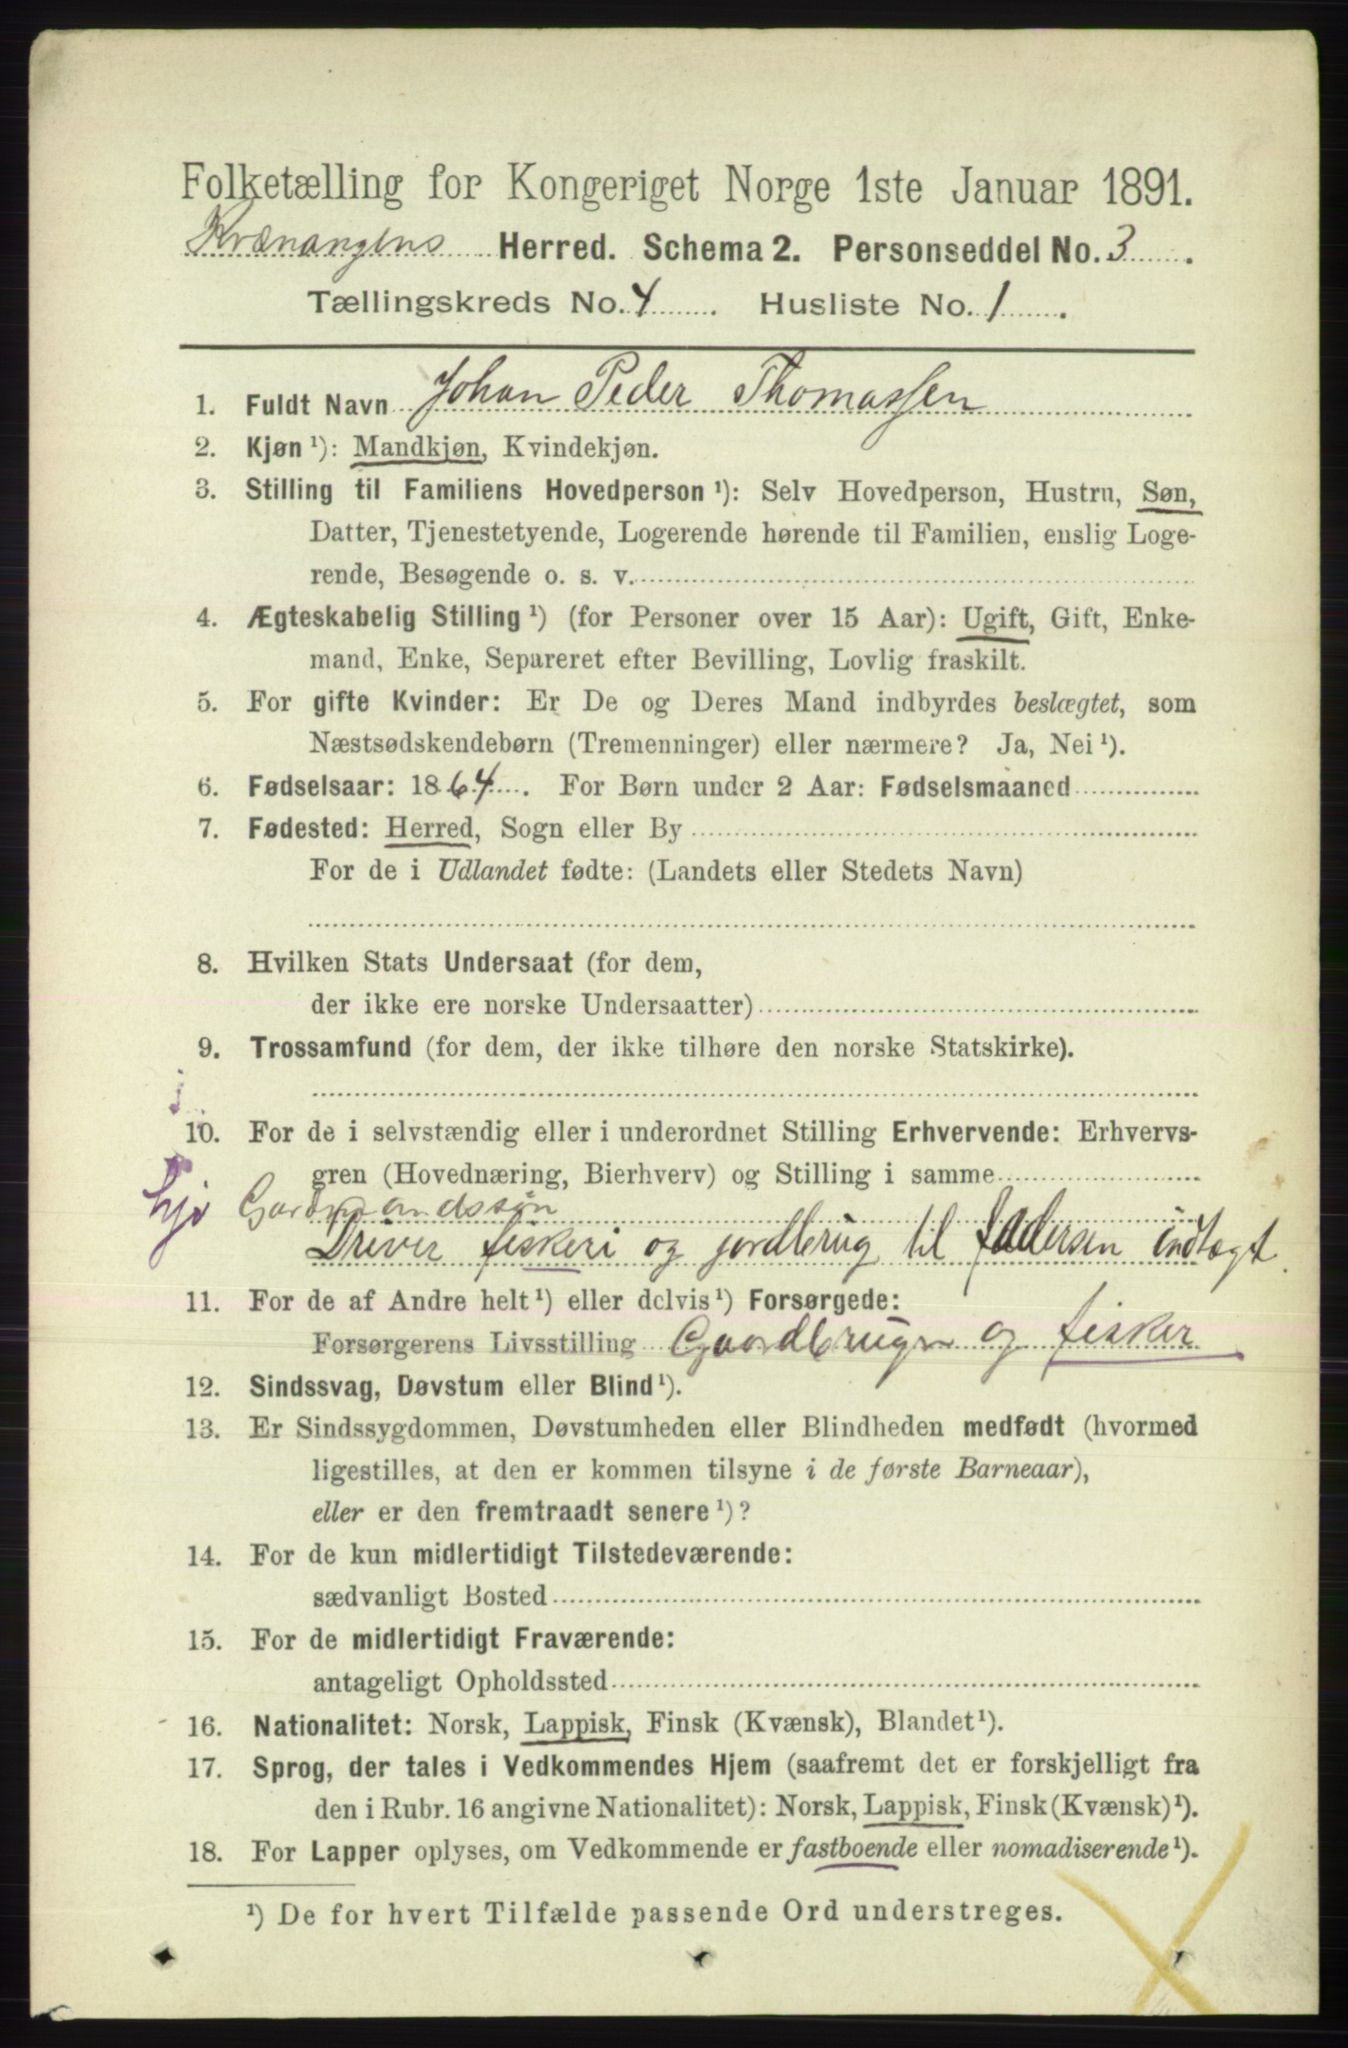 Folketælling for Kongeriget Norge 1ste Januar 1891.
Kvænangens Herred. Schema 2. Personseddel No. 3.
Tællingskreds No. 4. Husliste No. 1.
1. Fuldt Navn Johan Peder Thomassen
2. Kjøn ¹): Mandkjøn, Kvindekjøn.
3. Stilling til Familiens Hovedperson ¹): Selv Hovedperson, Hustru, Søn,
Datter, Tjenestetyende, Logerende hørende til Familien, enslig Loge-
rende, Besøgende o. s. v.
4. Ægteskabelig Stilling ¹) (for Personer over 15 Aar): Ugift, Gift, Enke-
mand, Enke, Separeret efter Bevilling, Lovlig fraskilt.
5. For gifte Kvinder: Er De og Deres Mand indbyrdes beslægtet, som
Næstsødskendebørn (Tremenninger) eller nærmere? Ja, Nei ¹).
6. Fødselsaar: 1864. For Børn under 2 Aar: Fødselsmaaned
7. Fødested: Herred, Sogn eller By
For de i Udlandet fødte: (Landets eller Stedets Navn)
8. Hvilken Stats Undersaat (for dem,
der ikke ere norske Undersaatter)
9. Trossamfund (for dem, der ikke tilhøre den norske Statskirke).
10. For de i selvstændig eller i underordnet Stilling Erhvervende: Erhvervs-
gren (Hovednæring, Bierhverv) og Stilling i samme
hjs Gardmandssøn
Driver fiskeri og jordbrug til fadersen indtægt.
11. For de af Andre helt ¹) eller delvis ¹) Forsørgede:
Forsørgerens Livsstilling Gaardbruger og fisker
12. Sindssvag, Døvstum eller Blind ¹).
13. Er Sindssygdommen, Døvstumheden eller Blindheden medfødt (hvormed
ligestilles, at den er kommen tilsyne i de første Barneaar),
eller er den fremtraadt senere ¹)?
14. For de kun midlertidigt Tilstedeværende:
sædvanligt Bosted
15. For de midlertidigt Fraværende:
antageligt Opholdssted
16. Nationalitet: Norsk, Lappisk, Finsk (Kvænsk), Blandet ¹).
17. Sprog, der tales i Vedkommendes Hjem (saafremt det er forskjelligt fra
den i Rubr. 16 angivne Nationalitet): Norsk, Lappisk, Finsk (Kvænsk) ¹).
18. For Lapper oplyses, om Vedkommende er fastboende eller nomadiserende ¹).
¹) De for hvert Tilfælde passende Ord understreges.